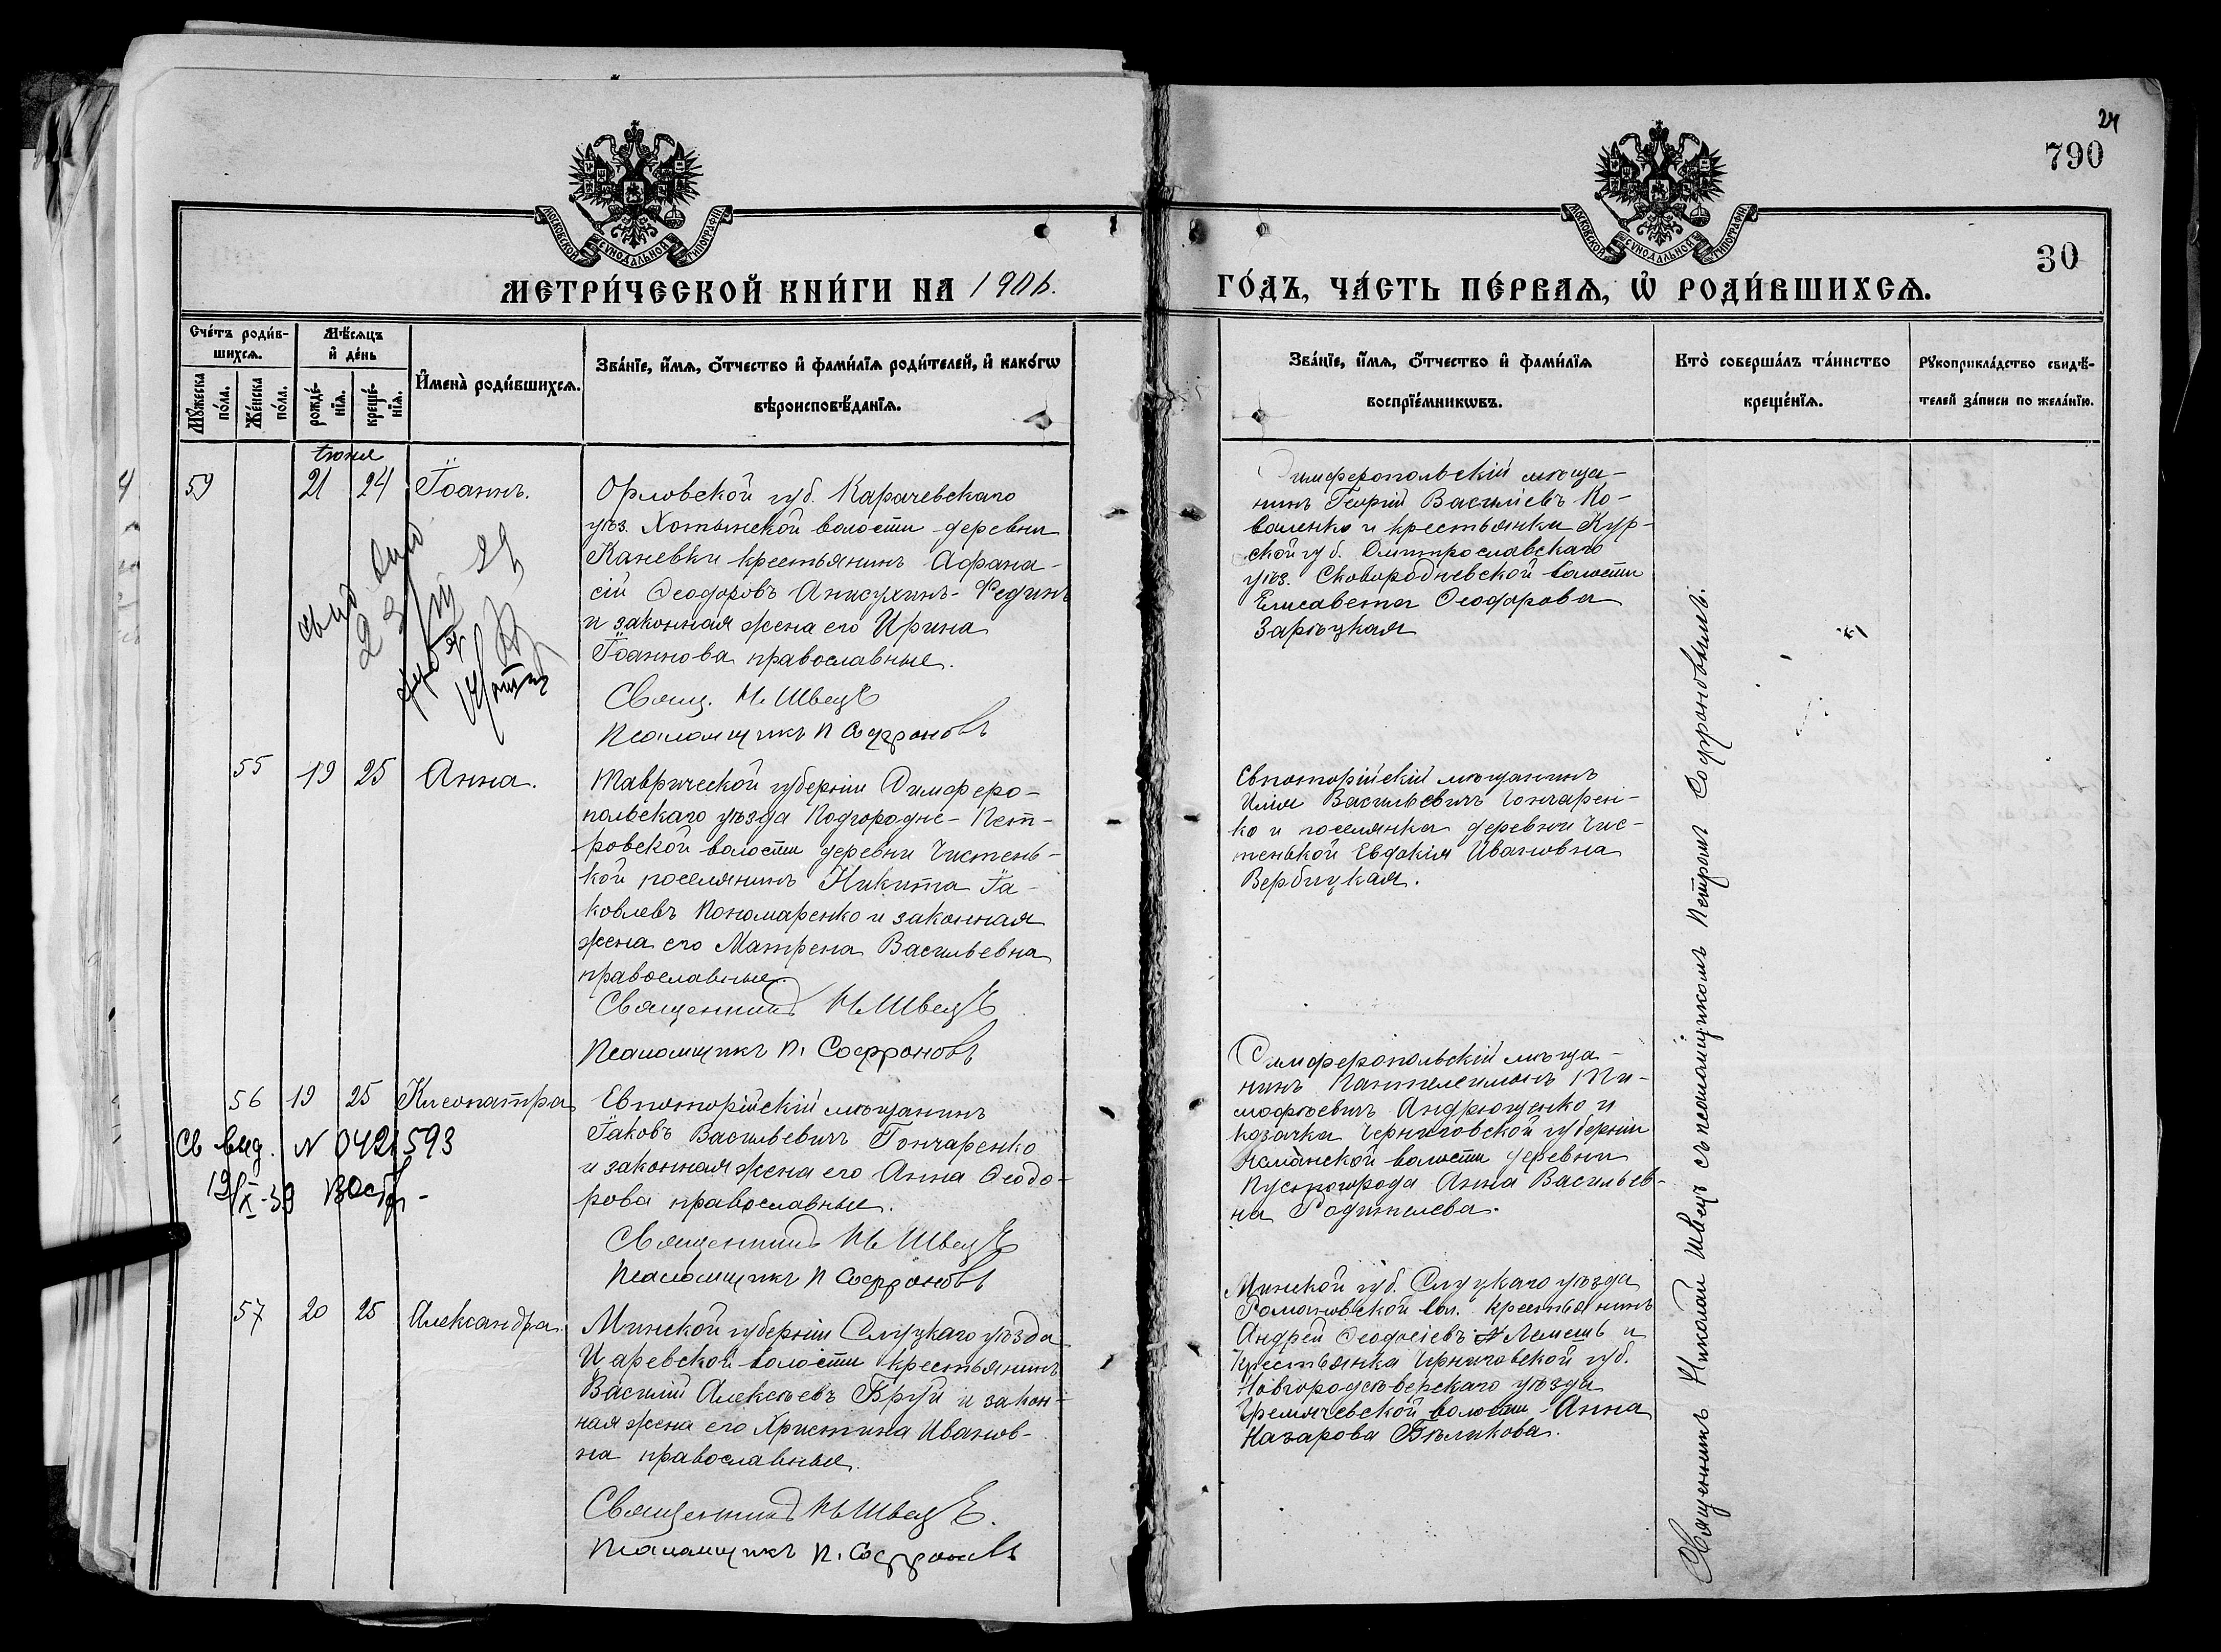 24
790
30
МОСКОВСКОЙ СѴНОДАЛЬНОЙ ТИПОГРАФІИ
МЕТРИ́ЧЕСКОЙ КНИ́ГИ НА 1906.
МОСКОВСКОЙ СѴНОДАЛЬНОЙ ТИПОГРАФІИ
ГО́ДЪ, ЧА́СТЬ ПЕ́РВАЯ, Ѡ҆ РОДИ́ВШИХСЯ.
Сче́тъ роди́в-
шихся.
Мѣ́сяцъ
и҆ де́нь
Мꙋ́жеска
по́ла.
Же́нска
по́ла.
рожде́-
нїя.
креще́-
нїя.
И҆мена̀ роди́вшихся.
Зва́нїе, и҆́мя, ѻ҆́тчество и҆ фами́лїя роди́телей, и҆ како́гѡ
вѣроисповѣ́данїя.
Зва́нїе, и҆́мя, ѻ҆́тчество и҆ фами́лїя
воспрїе́мникѡвъ.
Кто̀ соверша́лъ та́инство
креще́нїя.
Рꙋкоприкла́дство свидѣ́-
телей за́писи по жела́нїю.
Іюня
59
21
24
Іоаннъ.
Орловской губ. Карачевскаго
уѣз. Хотынской волости деревни
Каневки крестьянинъ Афана-
сій Ѳеодоровъ Анисухинъ-Рединъ
и законная жена его Ирина
Іоаннова православные.
Свящ. Н. Швецъ
Псаломщикъ П Софроновъ
Симферопольскій мѣща-
нинъ Георгій Василіевъ Ко-
валенко и крестьянка Кур-
ской губ. Дмитрославскаго
уѣз. Сковородневской волости
Елисавета Ѳеодорова
Зарѣцкая
55
19
25
Анна.
Таврической губерніи Симферо-
польскаго уѣзда Подгородне-Пет-
ровской волости деревни Чистень-
кой поселянинъ Никита Іа-
ковлевъ Пономаренко и законная
жена его Матрена Васильевна
православные.
Священникъ Н. Швецъ
Псаломщикъ П. Софроновъ
Евпаторійскій мѣщанинъ
Илія Васильевичъ Гончарен-
ко и поселянка деревни Чис-
тенькой Евдокія Ивановна
Вербицкая.
56
19
25
Клеопатра
Евпаторійскій мѣщанинъ
Іаковъ Васильевичъ Гончаренко
и законная жена его Анна Ѳеодо-
рова православные.
Священникъ Н. Швецъ
Псаломщикъ П Софроновъ
Св вид. N 0421593
19/IX-39
Симферопольскій мѣща-
нинъ Пантелеимонъ Ти-
мофѣевичъ Андрющенко и
козачка Черниговской губерніи
волости деревни
Пустогорода Анна Васильев-
на Родителева.
57
20
25
Александра.
Минской губерніи Слуцкаго уѣзда
Царевской волости крестьянинъ
Василій Алексѣевъ Бруй и закон-
ная жена его Христина Иванов-
на православные.
Священникъ Н. Швецъ.
Псаломщикъ П. Софроновъ
Минской губ. Слуцкаго уѣзда
Романовской вол. крестьянинъ
Андрей Ѳеодосіевъ Лемешъ и
крестьянка Черниговской губ.
Новгородсѣверскаго уѣзда
Гремячевской волости Анна
Назарова Бѣликова.
Священникъ Николай Швецъ съ псаломщикомъ Петромъ Софроновымъ.